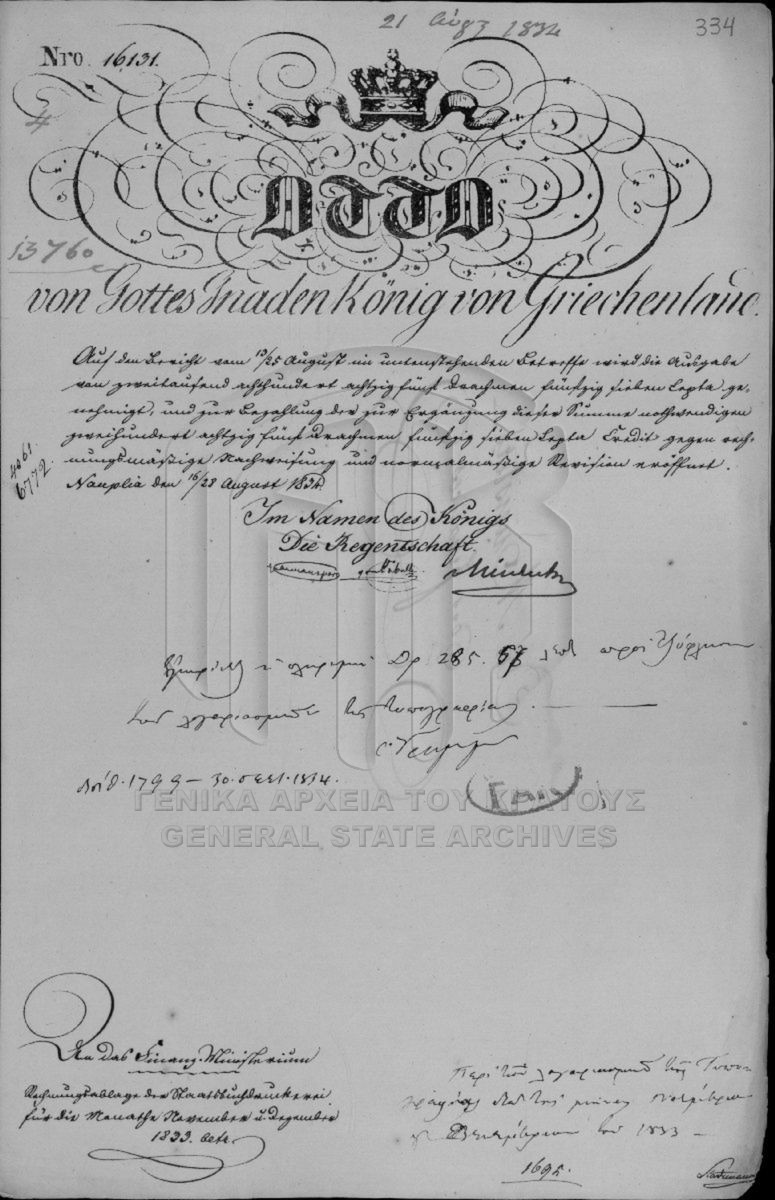 21 Αύγ 1834
334
Nro. 16131.
4
OTTO
13760
von Gottes Gnaden König von Griechenland.
Auf den Bericht vom 13/25 August im untenstehenden Betreffe wird die Ausgabe
von zweitausend achthundert achtzig fünf Drachmen fünfzig sieben Lepta ge-
nehmigt, und zur Bezahlung der zur Ergänzung dieser Summe nothwendigen
zweihundert achtzig fünf Drachmen fünfzig sieben Lepta Credit gegen rech-
nungsmäßige Nachweisung und normalmäßige Revision eröffnet.
6772.
Nauplia den 16/28 August 1834.
Im Namen des Königs
Die Regentschaft.
Δρ 285. 57 λεπτ προς εξόφλησιν
του λογαριασμού της τυπογραφίας. —
Αριθ. 1799 — 30. σεπτ. 1834.
ΓΕΝΙΚΑ ΑΡΧΕΙΑ ΤΟΥ ΚΡΑΤΟΥΣ
GENERAL STATE ARCHIVES
An das Finanz-Ministerium
Rechnungsablage der Staatsbuchdruckerei
für die Monathe November u. Dezember
1833. betr.
Περί του λογαριασμού της Τυπο-
γραφίας διά τους μήνας Νοέμβριον
και Δεκέμβριον του 1833 —
1695.